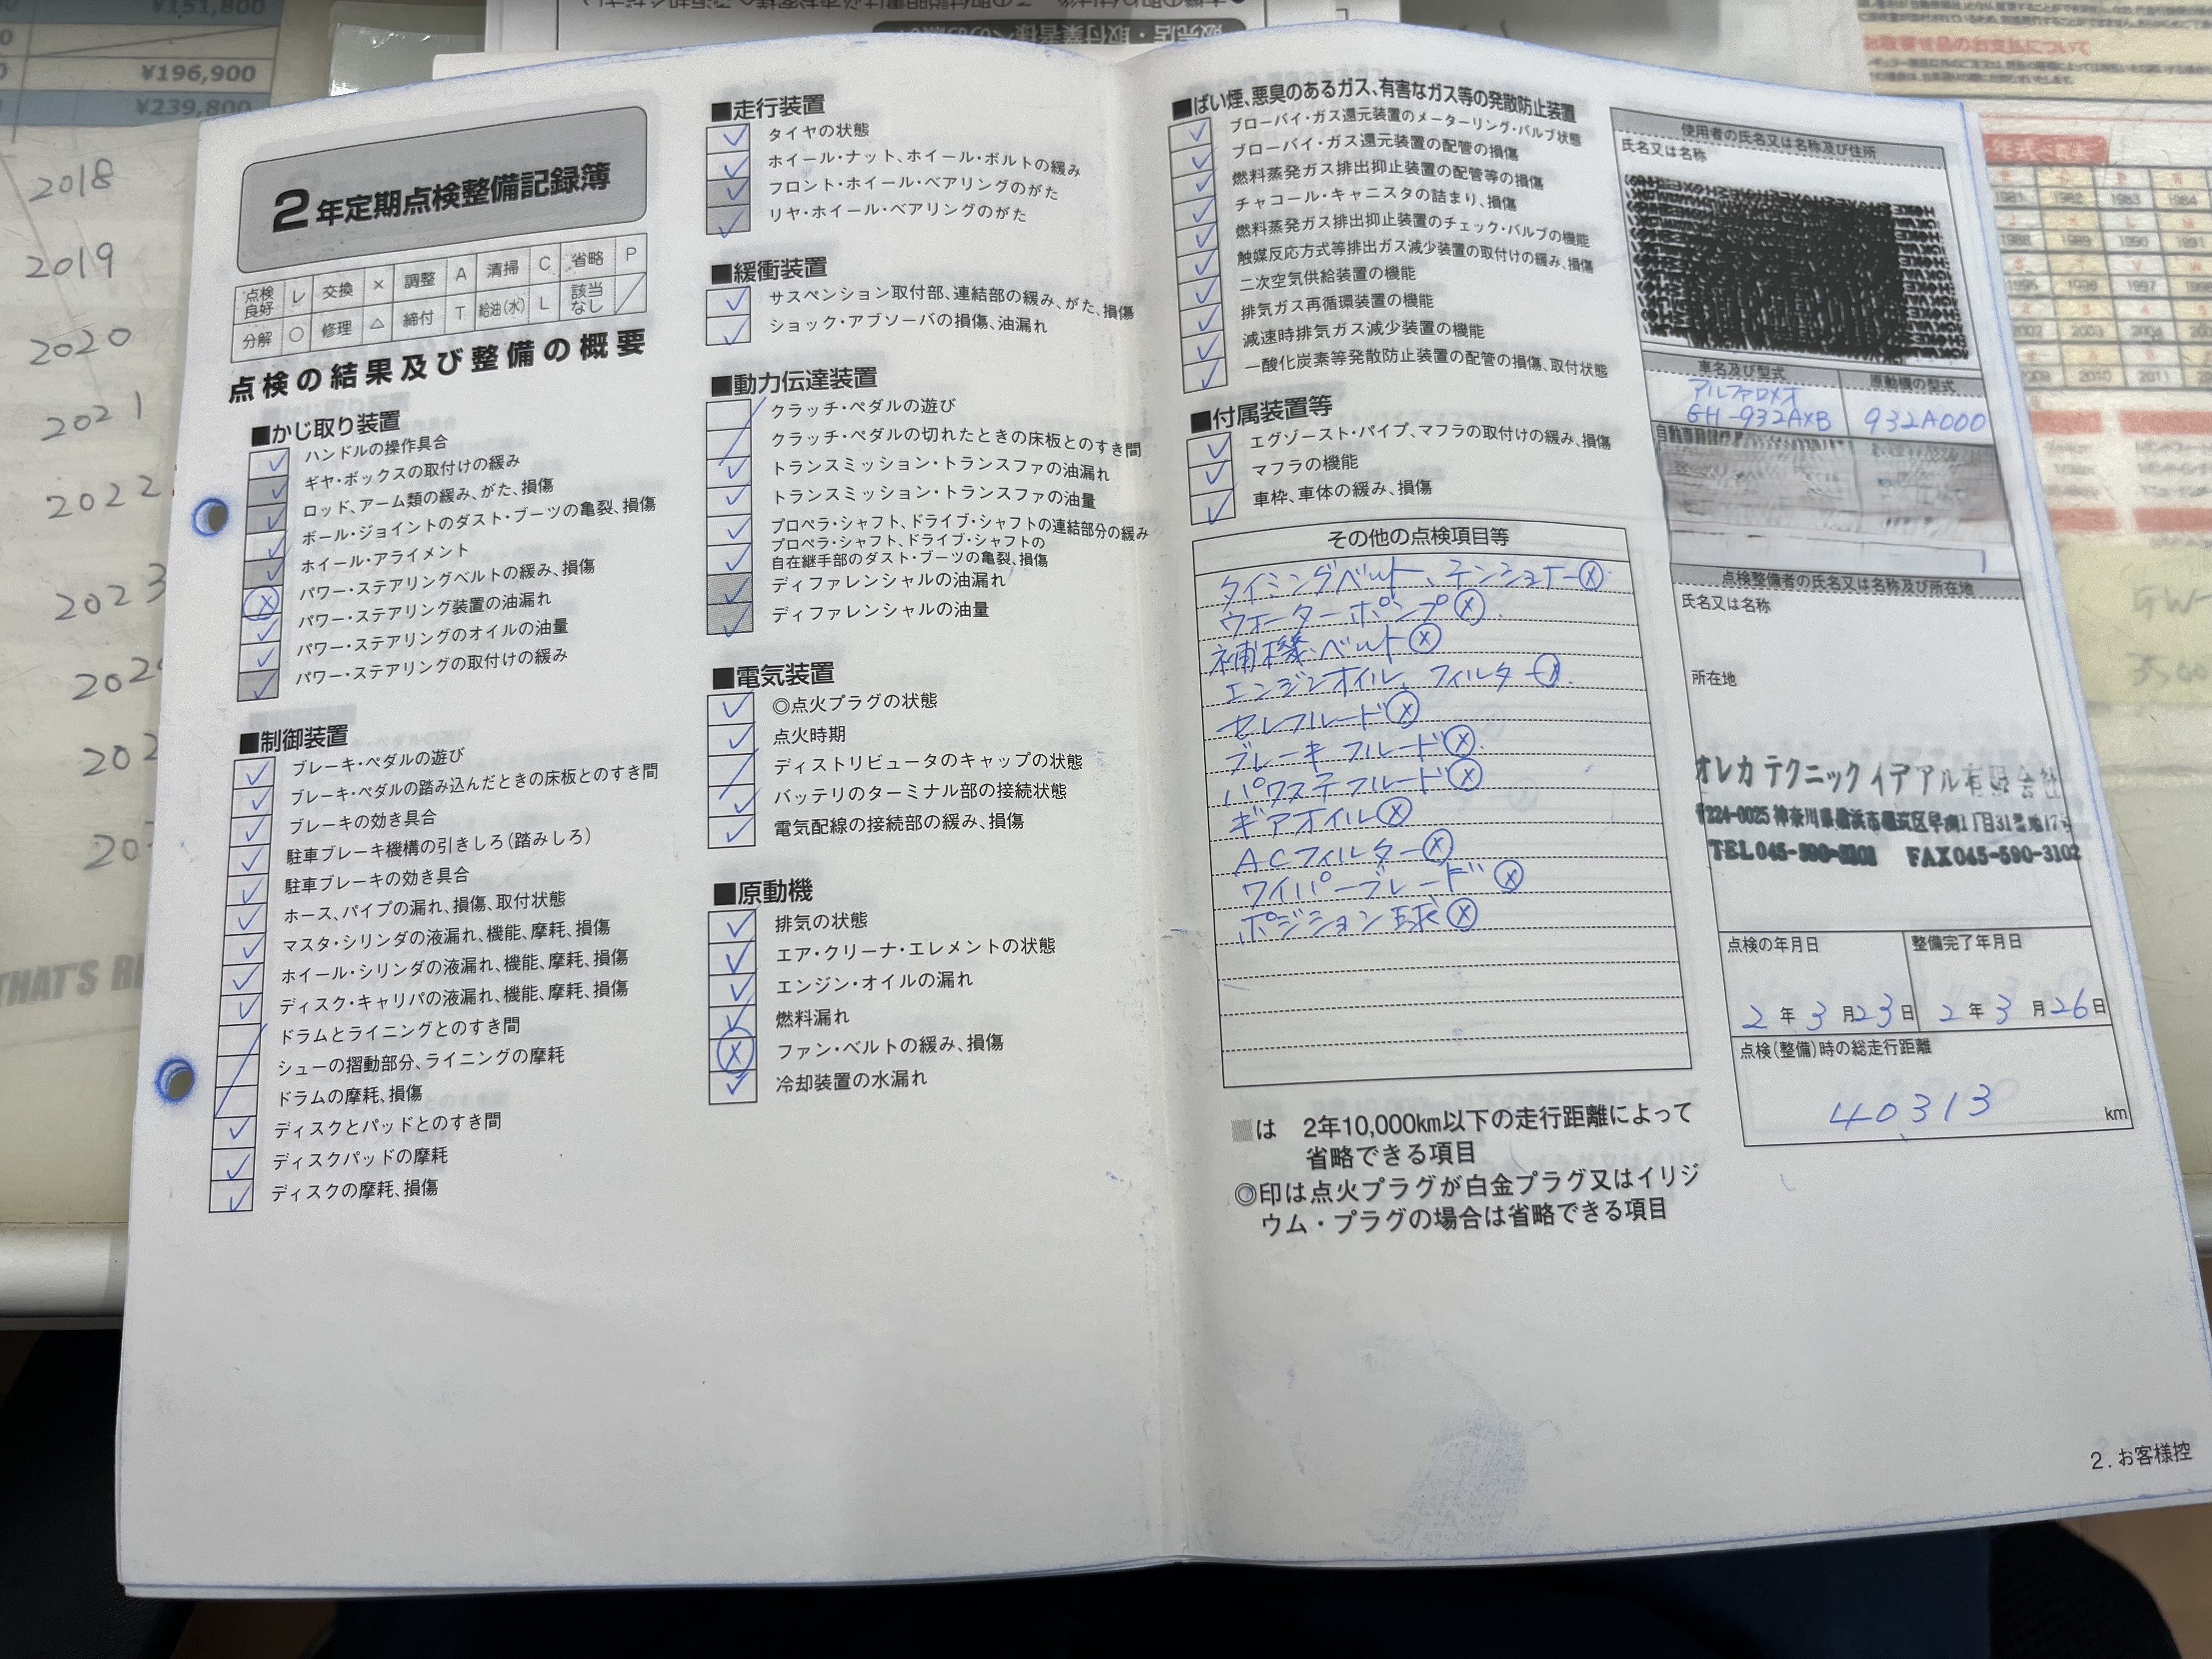 ¥151,800
¥196,900
¥239,800
2018
2019
2020
2021
2022
2023
THAT'S
2年定期点検整備記録簿
点検良好 レ 交換 × 調整 A 清掃 C 省略 P
分解 ○ 修理 △ 締付 T 給油(水) L 該当なし ／
点検の結果及び整備の概要
■かじ取り装置
ハンドルの操作具合
ギヤ・ボックスの取付けの緩み
ロッド、アーム類の緩み、がた、損傷
ボール・ジョイントのダスト・ブーツの亀裂、損傷
ホイール・アライメント
パワー・ステアリングベルトの緩み、損傷
パワー・ステアリング装置の油漏れ
パワー・ステアリングのオイルの油量
パワー・ステアリングの取付けの緩み
■制御装置
ブレーキ・ペダルの遊び
ブレーキ・ペダルの踏み込んだときの床板とのすき間
ブレーキの効き具合
駐車ブレーキ機構の引きしろ(踏みしろ)
駐車ブレーキの効き具合
ホース、パイプの漏れ、損傷、取付状態
マスタ・シリンダの液漏れ、機能、摩耗、損傷
ホイール・シリンダの液漏れ、機能、摩耗、損傷
ディスク・キャリパの液漏れ、機能、摩耗、損傷
ドラムとライニングとのすき間
シューの摺動部分、ライニングの摩耗
ドラムの摩耗、損傷
ディスクとパッドとのすき間
ディスクパッドの摩耗
ディスクの摩耗、損傷
■走行装置
タイヤの状態
ホイール・ナット、ホイール・ボルトの緩み
フロント・ホイール・ベアリングのがた
リヤ・ホイール・ベアリングのがた
■緩衝装置
サスペンション取付部、連結部の緩み、がた、損傷
ショック・アブソーバの損傷、油漏れ
■動力伝達装置
クラッチ・ペダルの遊び
クラッチ・ペダルの切れたときの床板とのすき間
トランスミッション・トランスファの油漏れ
トランスミッション・トランスファの油量
プロペラ・シャフト、ドライブ・シャフトの連結部分の緩み
プロペラ・シャフト、ドライブ・シャフトの
自在継手部のダスト・ブーツの亀裂、損傷
ディファレンシャルの油漏れ
ディファレンシャルの油量
■電気装置
◎点火プラグの状態
点火時期
ディストリビュータのキャップの状態
バッテリのターミナル部の接続状態
電気配線の接続部の緩み、損傷
■原動機
排気の状態
エア・クリーナ・エレメントの状態
エンジン・オイルの漏れ
燃料漏れ
ファン・ベルトの緩み、損傷
冷却装置の水漏れ
■ばい煙、悪臭のあるガス、有害なガス等の発散防止装置
ブローバイ・ガス還元装置のメーターリング・バルブ状態
ブローバイ・ガス還元装置の配管の損傷
燃料蒸発ガス排出抑止装置の配管等の損傷
チャコール・キャニスタの詰まり、損傷
燃料蒸発ガス排出抑止装置のチェック・バルブの機能
触媒反応方式等排出ガス減少装置の取付けの緩み、損傷
二次空気供給装置の機能
排気ガス再循環装置の機能
減速時排気ガス減少装置の機能
一酸化炭素等発散防止装置の配管の損傷、取付状態
■付属装置等
エグゾースト・パイプ、マフラの取付けの緩み、損傷
マフラの機能
車枠、車体の緩み、損傷
その他の点検項目等
タイミングベルト、テンショナー ⓧ
ウォーターポンプ ⓧ
補機ベルト ⓧ
エンジンオイル、フィルター ⓧ
セレフルード ⓧ
ブレーキフルード ⓧ
パワステフルード ⓧ
ギアオイル ⓧ
ACフィルター ⓧ
ワイパーブレード ⓧ
ポジション球 ⓧ
は 2年10,000km以下の走行距離によって
省略できる項目
◎印は点火プラグが白金プラグ又はイリジ
ウム・プラグの場合は省略できる項目
使用者の氏名又は名称及び住所
氏名又は名称
車名及び型式 原動機の型式
アルファロメオ
GH-932AXB 932A000
点検整備者の氏名又は名称及び所在地
氏名又は名称
所在地
オレカ テクニック イデアル有限会社
〒224-0025 神奈川県横浜市都筑区早渕1丁目31番地17号
FAX 045-590-3102
点検の年月日 整備完了年月日
2年3月23日 2年3月26日
点検(整備)時の総走行距離
40313 km
2.お客様控